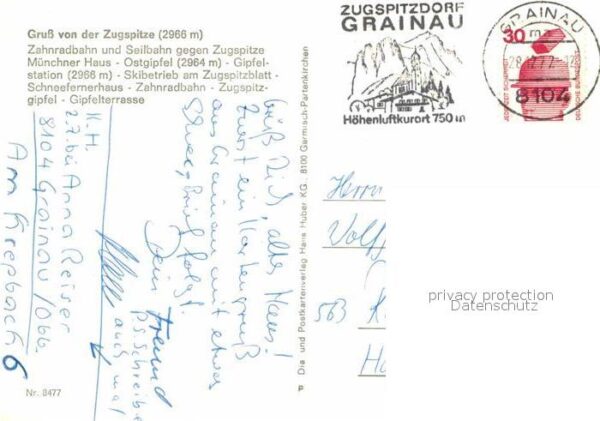 Gruß von der Zugspitze (2966 m)
Zahnradbahn und Seilbahn gegen Zugspitze
Münchner Haus - Ostgipfel (2964 m) - Gipfel-
station (2966 m) - Skibetrieb am Zugspitzblatt -
Schneefernerhaus - Zahnradbahn - Zugspitz-
gipfel - Gipfelterrasse
ZUGSPITZDORF
GRAINAU
Höhenluftkurort 750 m
GRAINAU
8104
30
JEDERZEIT SICHERHEIT
DEUTSCHE BUNDESPOST
Grüß Dich, altes Haus!
Zuerst ein Kartengruß
aus Grainau mit etwas
Schnee, Brief folgt.
Dein Freund
PS Schreibe
auch mal
K.H.
27. bei Anna Reiser
8104 Grainau/Obb.
Am Krepbach 6
Die und Postkartenverlag Hans Huber KG., 8100 Garmisch-Partenkirchen
Herrn
Wolf
563
privacy protection
Datenschutz
Nr. 8477